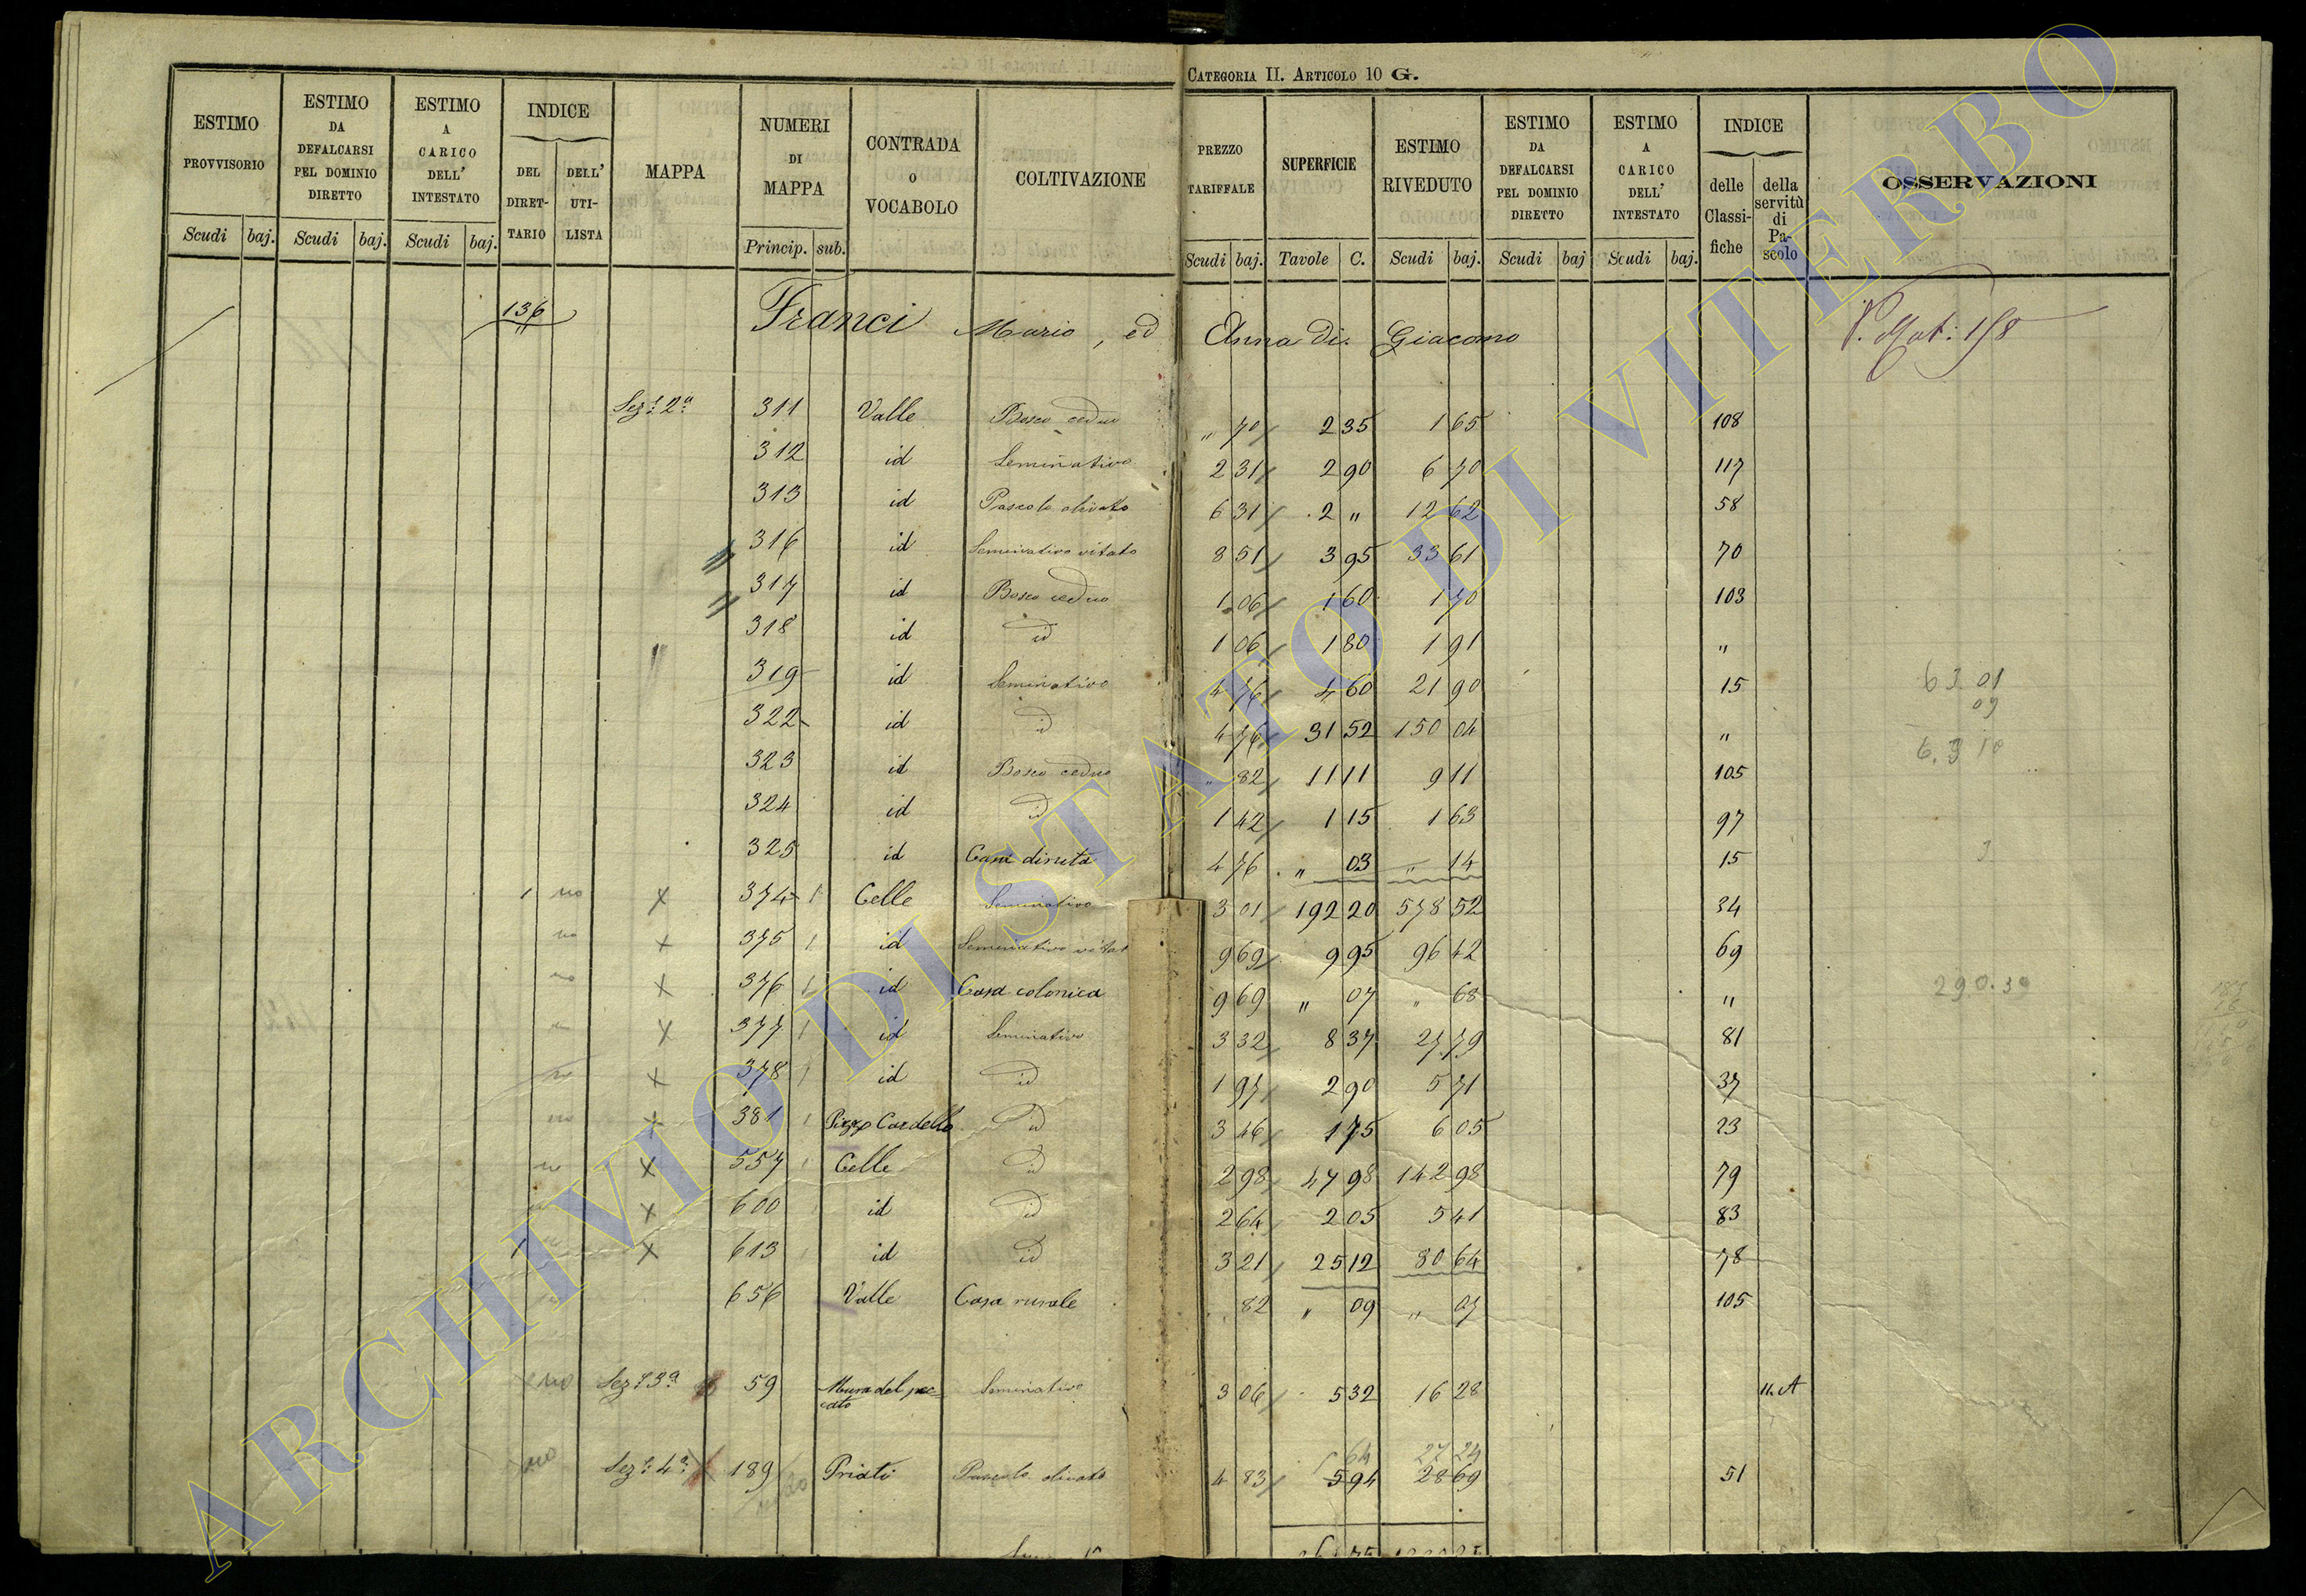 CATEGORIA II. ARTICOLO 10 G.
ESTIMO PROVVISORIO Scudi baj.
ESTIMO DA DEFALCARSI PEL DOMINIO DIRETTO Scudi baj.
ESTIMO A CARICO DELL' INTESTATO Scudi baj.
INDICE DEL DIRETTARIO DELL' UTILISTA
MAPPA
NUMERI DI MAPPA Princip. sub.
CONTRADA O VOCABOLO
COLTIVAZIONE
PREZZO TARIFFALE Scudi baj.
SUPERFICIE Tavole C.
ESTIMO RIVEDUTO Scudi baj.
ESTIMO DA DEFALCARSI PEL DOMINIO DIRETTO Scudi baj
ESTIMO A CARICO DELL' INTESTATO Scudi baj.
INDICE delle Classifiche della servitù di Pascolo
OSSERVAZIONI
136 Franci Mario, ed Anna di Giacomo
Sez: 2ª 311 Valle Bosco ceduo " 70 2 35 1 65 108
312 id Seminativo 2 31 2 90 6 70 117
313 id Pascolo olivato 6 31 2 " 12 62 58
316 id Seminativo vitato 8 51 3 95 33 61 70
317 id Bosco ceduo 1 06 1 60 1 70 103
318 id id 1 06 1 80 1 91 "
319 id Seminativo 4 76 4 60 21 90 15
322 id id 4 76 31 52 150 04 "
323 id Bosco ceduo " 82 11 11 9 11 105
324 id id 1 42 1 15 1 63 97
325 id Casa diruta 4 76 " 03 " 14 15
1 no x 374 1 Celle Seminativo 3 01 192 20 578 52 34
no x 375 1 id Seminativo vitat 9 69 9 95 96 42 69
no x 376 1 id Casa colonica 9 69 " 07 " 68 "
x 377 1 id Seminativo 3 32 8 37 27 79 81
no x 378 1 id id 1 97 2 90 5 71 37
no x 381 1 Pizzo Cardello id 3 46 1 75 6 05 23
no x 557 1 Celle id 2 98 47 98 142 98 79
x 600 id id 2 64 2 05 5 41 83
1 x 613 id id 3 21 25 12 80 64 78
656 Valle Casa rurale 82 " 09 " 07 105
no Sez: 3ª 59 Mura del peccato Seminativo 3 06 5 32 16 28 11. A
64 27 24
no Sez: 4ª 189 Priati Pascolo olivato 4 83 5 94 28 69 51
63 01
09
63 10
3
290.39
ARCHIVIO DI STATO DI VITERBO